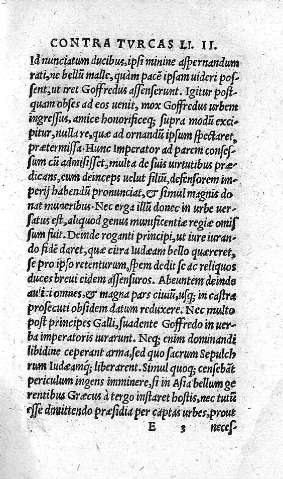 CONTRA TVRCAS LI. II.
Id nunciatum ducibus, ipsi minime aspernandum
rati, ne bellũ malle, quàm pacẽ ipsam uideri pos-
sent, ut iret Goffredus assenserunt. Igitur post-
quam obses ad eos uenit, mox Goffredus urbem
ingressus, amice honorificeq; supra modũ exci-
pitur, nulla re, quæ ad ornandũ ipsum spectaret,
prætermissa. Hunc Imperator ad parem conses-
sum cũ admisisset, multa de suis uirtutibus præ-
dicans, eum deinceps uelut filiũ, defensorem im-
perij habendũ pronunciat, & simul magnis do-
nat muneribus. Nec erga illũ donec in urbe ver-
satus est, aliquod genus munificentiæ regiæ omis-
sum fuit. Deinde roganti principi, ut iure iuran-
do fidẽ daret, quæ citra Iudæam bello quæreret,
se pro ipso retenturum, spem dedit se ac reliquos
duces breui eidem assensuros. Abeuntem deinde
omnes, & magna pars ciuiũ, usq; in castra
prosecuti obsidem datum reduxere. Nec multo
post principes Galli, suadente Goffredo in uer-
ba imperatoris iurarunt. Neq; enim dominandi
libidine ceperant arma, sed quo sacrum Sepulch
rum Iudæamq; liberarent. Simul quoq; censebãt
periculum ingens imminere, si in Asia bellum ge
rentibus Græcus à tergo instaret hostis, nec tutũ
esse dimittendo præsidia per captas urbes, prout
E 3 neces-